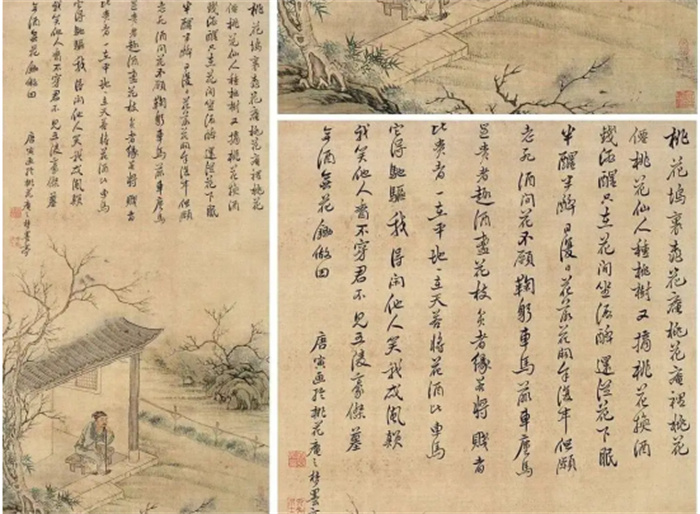 桃花塢裏桃花庵裡桃花
仙桃花仙人種桃樹又摘桃花換酒
錢酒醒只在花間坐酒醉還花下眠
半醒半醉日復日花落花開年復年但願
老死酒間花不願鞠躬車馬前車塵馬
足貴者趣酒盞花枝貧者緣若將賤者
比貴者一在平地一在天若將花酒比車馬
得馳驅我得閑他人笑我忒風顛
我笑他人看不穿君不見五陵豪傑墓
無酒無花鋤做田
唐寅畫於桃花庵之夢墨亭
桃花塢裏桃花庵裡桃花
仙桃花仙人種桃樹又摘桃花換酒
錢酒醒只在花間坐酒醉還花下眠
半醒半醉日復日花落花開年復年但願
老死酒間花不願鞠躬車馬前車塵馬
足貴者趣酒盞花枝貧者緣若將賤者
比貴者一在平地一在天若將花酒比車馬
得馳驅我得閑他人笑我忒風顛
我笑他人看不穿君不見五陵豪傑墓
無酒無花鋤做田
唐寅畫於桃花庵之夢墨